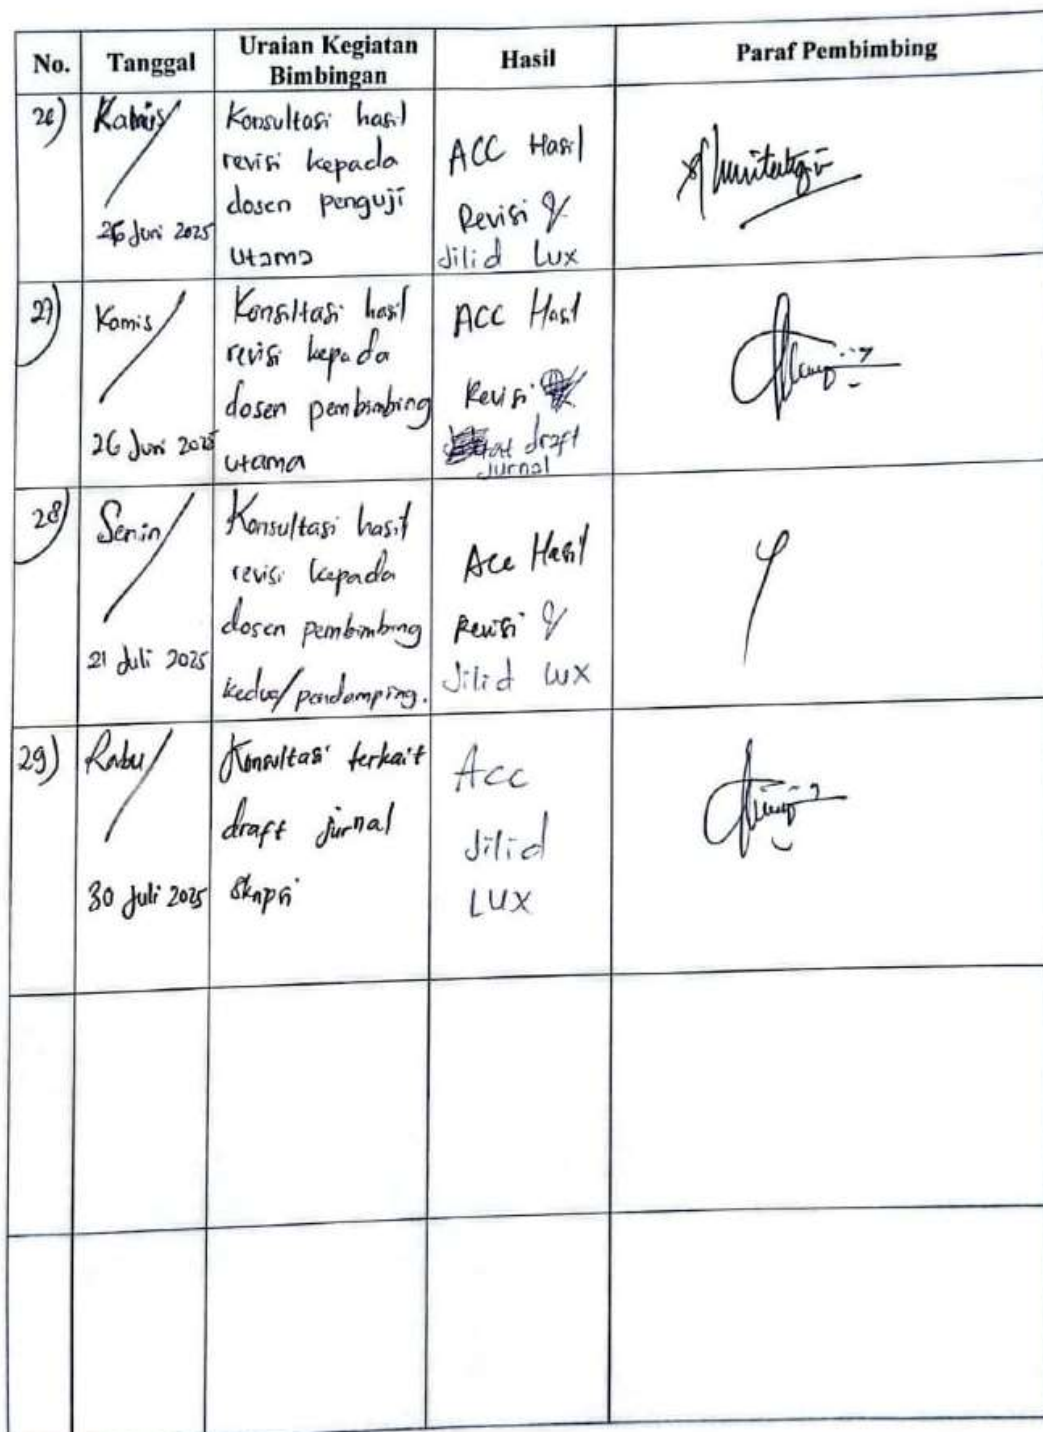 No. Tanggal Uraian Kegiatan Bimbingan Hasil Paraf Pembimbing
26) Kamis/
26 Juni 2025
Konsultasi hasil
revisi kepada
dosen penguji
utama
ACC Hasil
Revisi &
Jilid Lux
27) Kamis/
26 Juni 2025
Konsultasi hasil
revisi kepada
dosen pembimbing
utama
ACC Hasil
Revisi
draft
jurnal
28) Senin/
21 Juli 2025
Konsultasi hasil
revisi kepada
dosen pembimbing
kedua/pendamping.
Acc Hasil
Revisi &
Jilid Lux
29) Rabu/
30 Juli 2025
Konsultasi terkait
draft jurnal
skripsi
Acc
Jilid
LUX